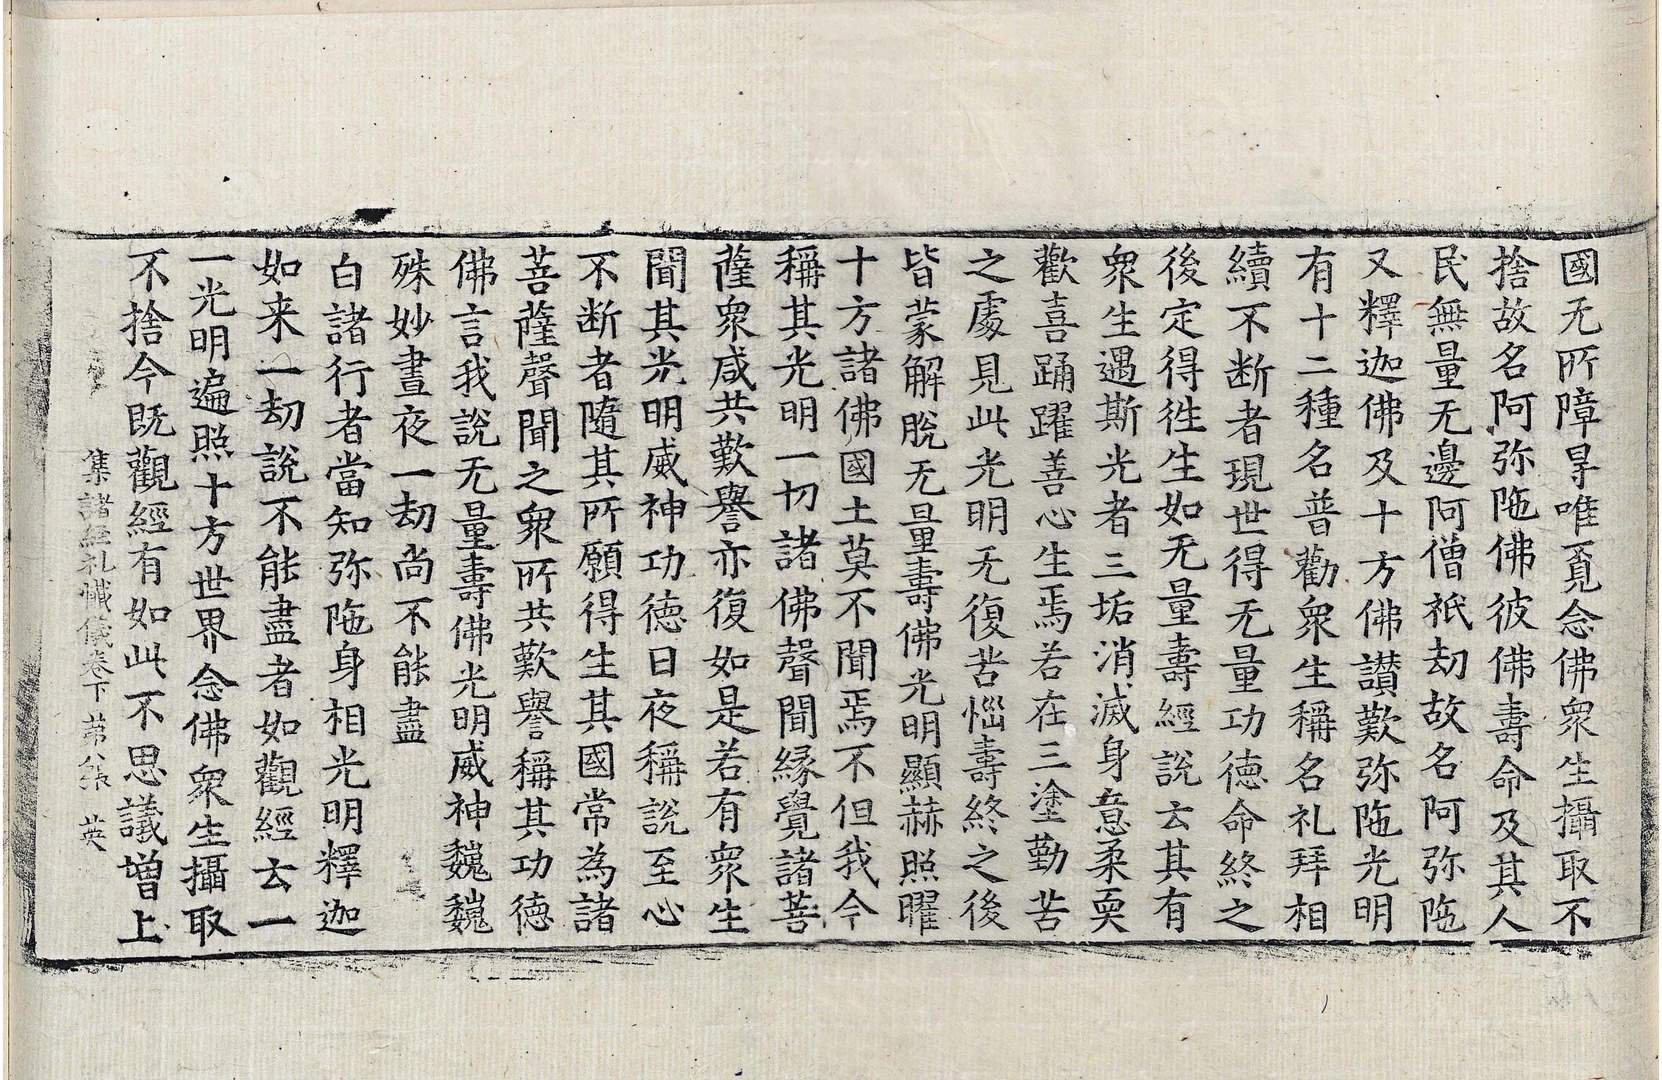 國无所障㝵唯覔念佛衆生攝取不
捨故名阿弥陁佛彼佛壽命及其人
民無量无邊阿僧祇劫故名阿弥陁
又釋迦佛及十方佛讃歎弥陁光明
有十二種名普勸衆生稱名礼拜相
續不断者現世得无量功德命終之
後定得徃生如无量壽經說云其有
衆生遇斯光者三垢消滅身意柔耎
歡喜踊躍善心生焉若在三塗勤苦
之處見此光明无復苦惱壽終之後
皆蒙解脫无量壽佛光明顯赫照曜
十方諸佛國土莫不聞焉不但我今
稱其光明一切諸佛聲聞緣覺諸菩
薩衆咸共歎譽亦復如是若有衆生
聞其光明威神功德日夜稱說至心
不断者隨其所願得生其國常為諸
菩薩聲聞之衆所共歎譽稱其功德
佛言我說无量壽佛光明威神巍巍
殊妙晝夜一劫尚不能盡
白諸行者當知弥陁身相光明釋迦
如来一劫說不能盡者如觀經云一
一光明遍照十方世界念佛衆生攝取
不捨今既觀經有如此不思議增上
集諸經礼懺儀卷下 苐八張 英